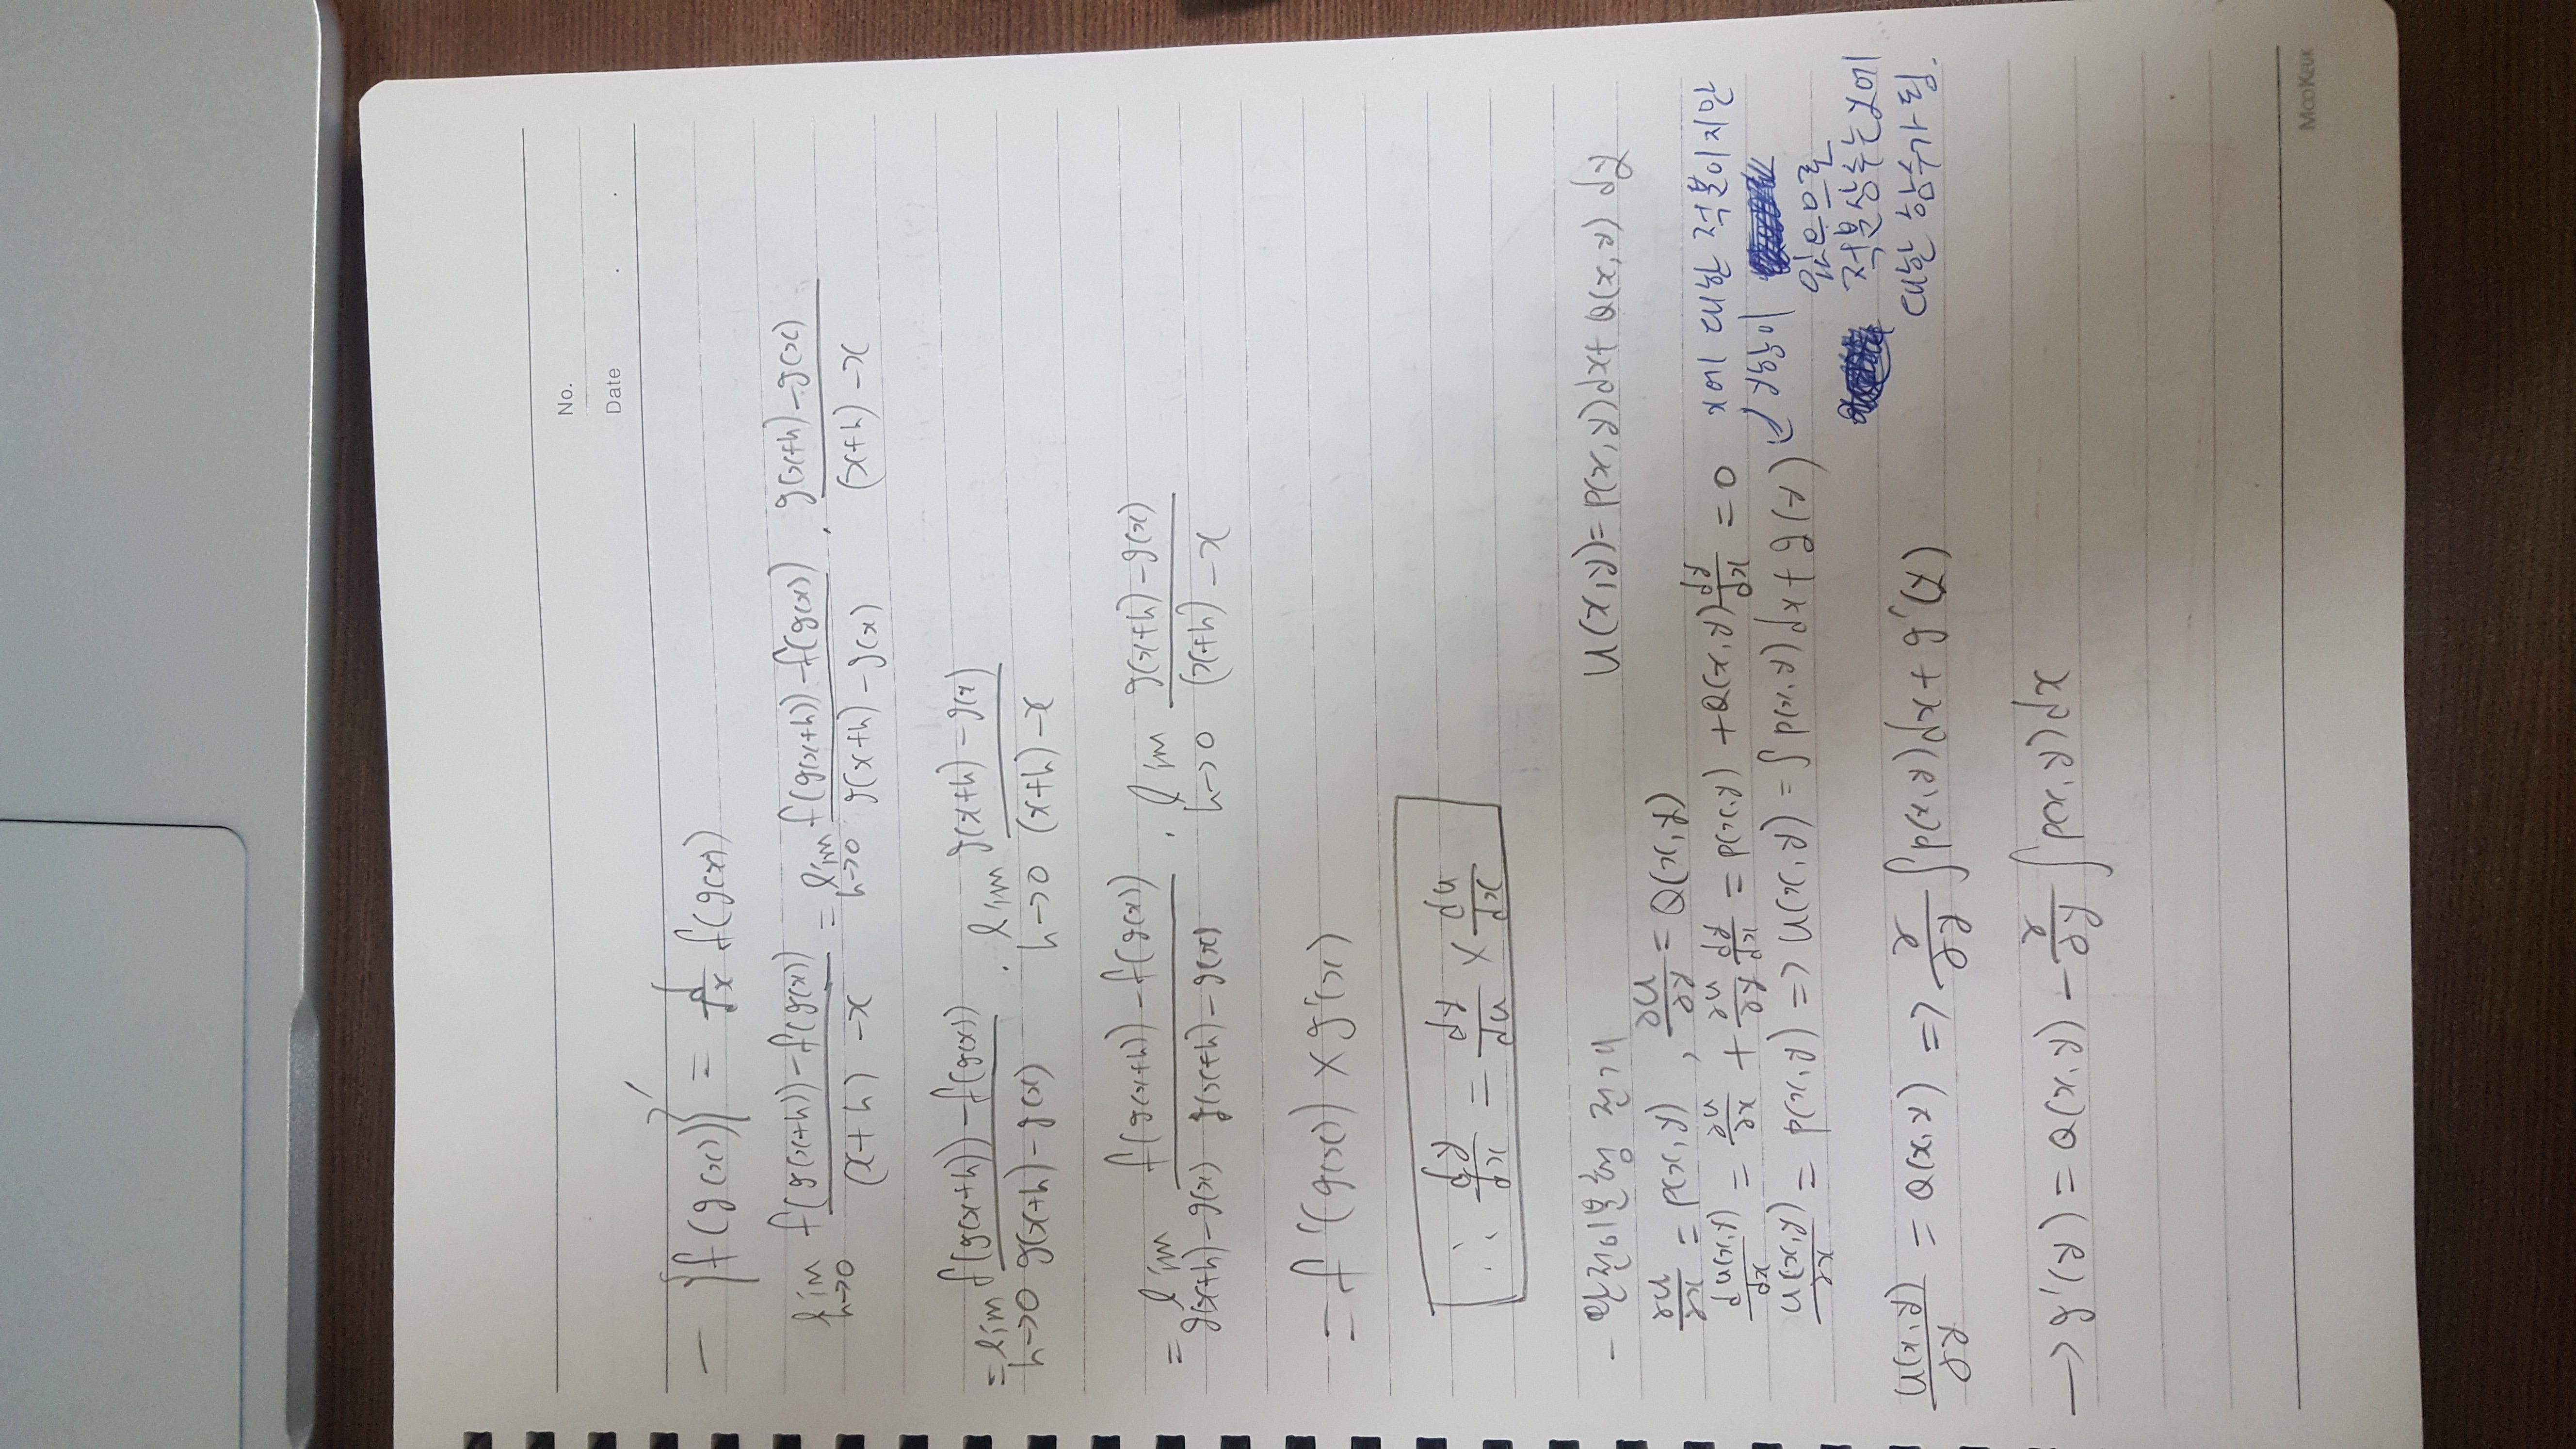 No.
Date . .
- {f(g(x))}' = d/dx f(g(x))
lim h→0 f(g(x+h))-f(g(x)) / (x+h)-x = lim h→0 f(g(x+h))-f(g(x)) / g(x+h)-g(x) · g(x+h)-g(x) / (x+h)-x
= lim h→0 f(g(x+h))-f(g(x)) / g(x+h)-g(x) · lim h→0 g(x+h)-g(x) / (x+h)-x
= lim g(x+h)-g(x) f(g(x+h))-f(g(x)) / g(x+h)-g(x) · lim h→0 g(x+h)-g(x) / (x+h)-x
= f'(g(x)) × g'(x)
∴ dy/dx = dy/du × du/dx
- 완전미분형 전개 u(x,y)= p(x,y)dx+ Q(x,y) dy
∂u/∂x = p(x,y) , ∂u/∂y = Q(x,y)
du(x,y)/dx = ∂u/∂x + ∂u/∂y dy/dx = p(x,y) + Q(x,y) dy/dx = 0
u(x,y)/∂x = p(x,y) => u(x,y) = ∫p(x,y)dx + g(y)
x에 대한 적분이지만
y항이
있으므로
적분상수는 y에
대한 함수가 됨.
u(x,y)/∂y = Q(x,y) => ∂/∂y ∫p(x,y)dx + g'(y)
→ g'(y) = Q(x,y) - ∂/∂y ∫p(x,y)dx
MOOKEUK